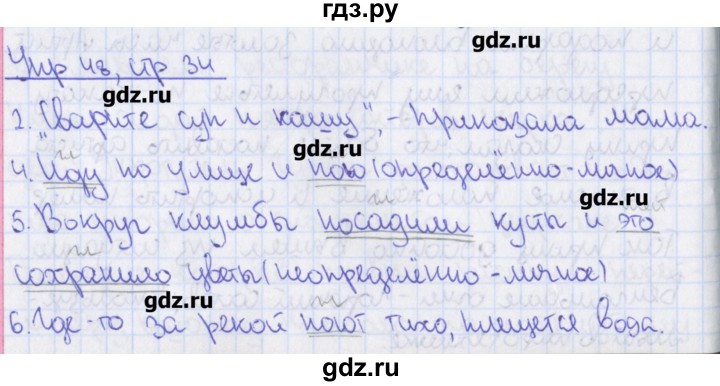 гдз.ру
gdz.ru
Упр 48, стр 34
gdz.ru
2. "Сварите суп и кашу", - приказала мама.
gdz.ru
4. Иду по улице и пою (определённо-личное)
gdz.ru
5. Вокруг клумбы посадили кусты и это
сохранило цветы (неопределённо-личное)
gdz.ru
6. Где-то за рекой поют тихо, плещется вода.
gdz.ru
gdz.ru